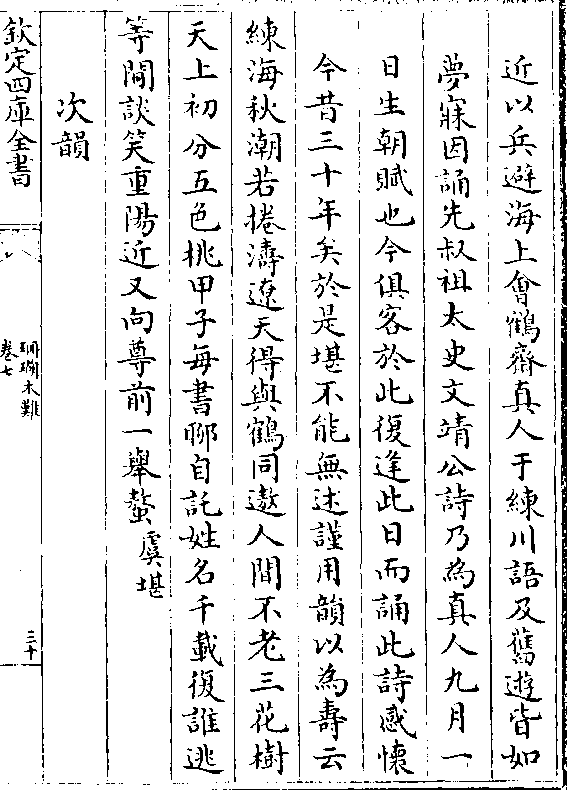 近以兵避海上會鶴齋真人于練川語及舊遊皆如
夢寐因誦先叔祖太史文靖公詩乃為真人九月一
日生朝賦也今俱客於此復逢此日而誦此詩感懷
今昔三十年矣於是堪不能無述謹用韻以為壽云
練海秋潮若捲濤遼天得與鶴同遨人間不老三花樹
天上初分五色桃甲子每書聊自託姓名千載復誰逃
等閒談笑重陽近又向尊前一舉螯 虞堪
次韻
欽定四庫全書
珊瑚木難
卷七
三十